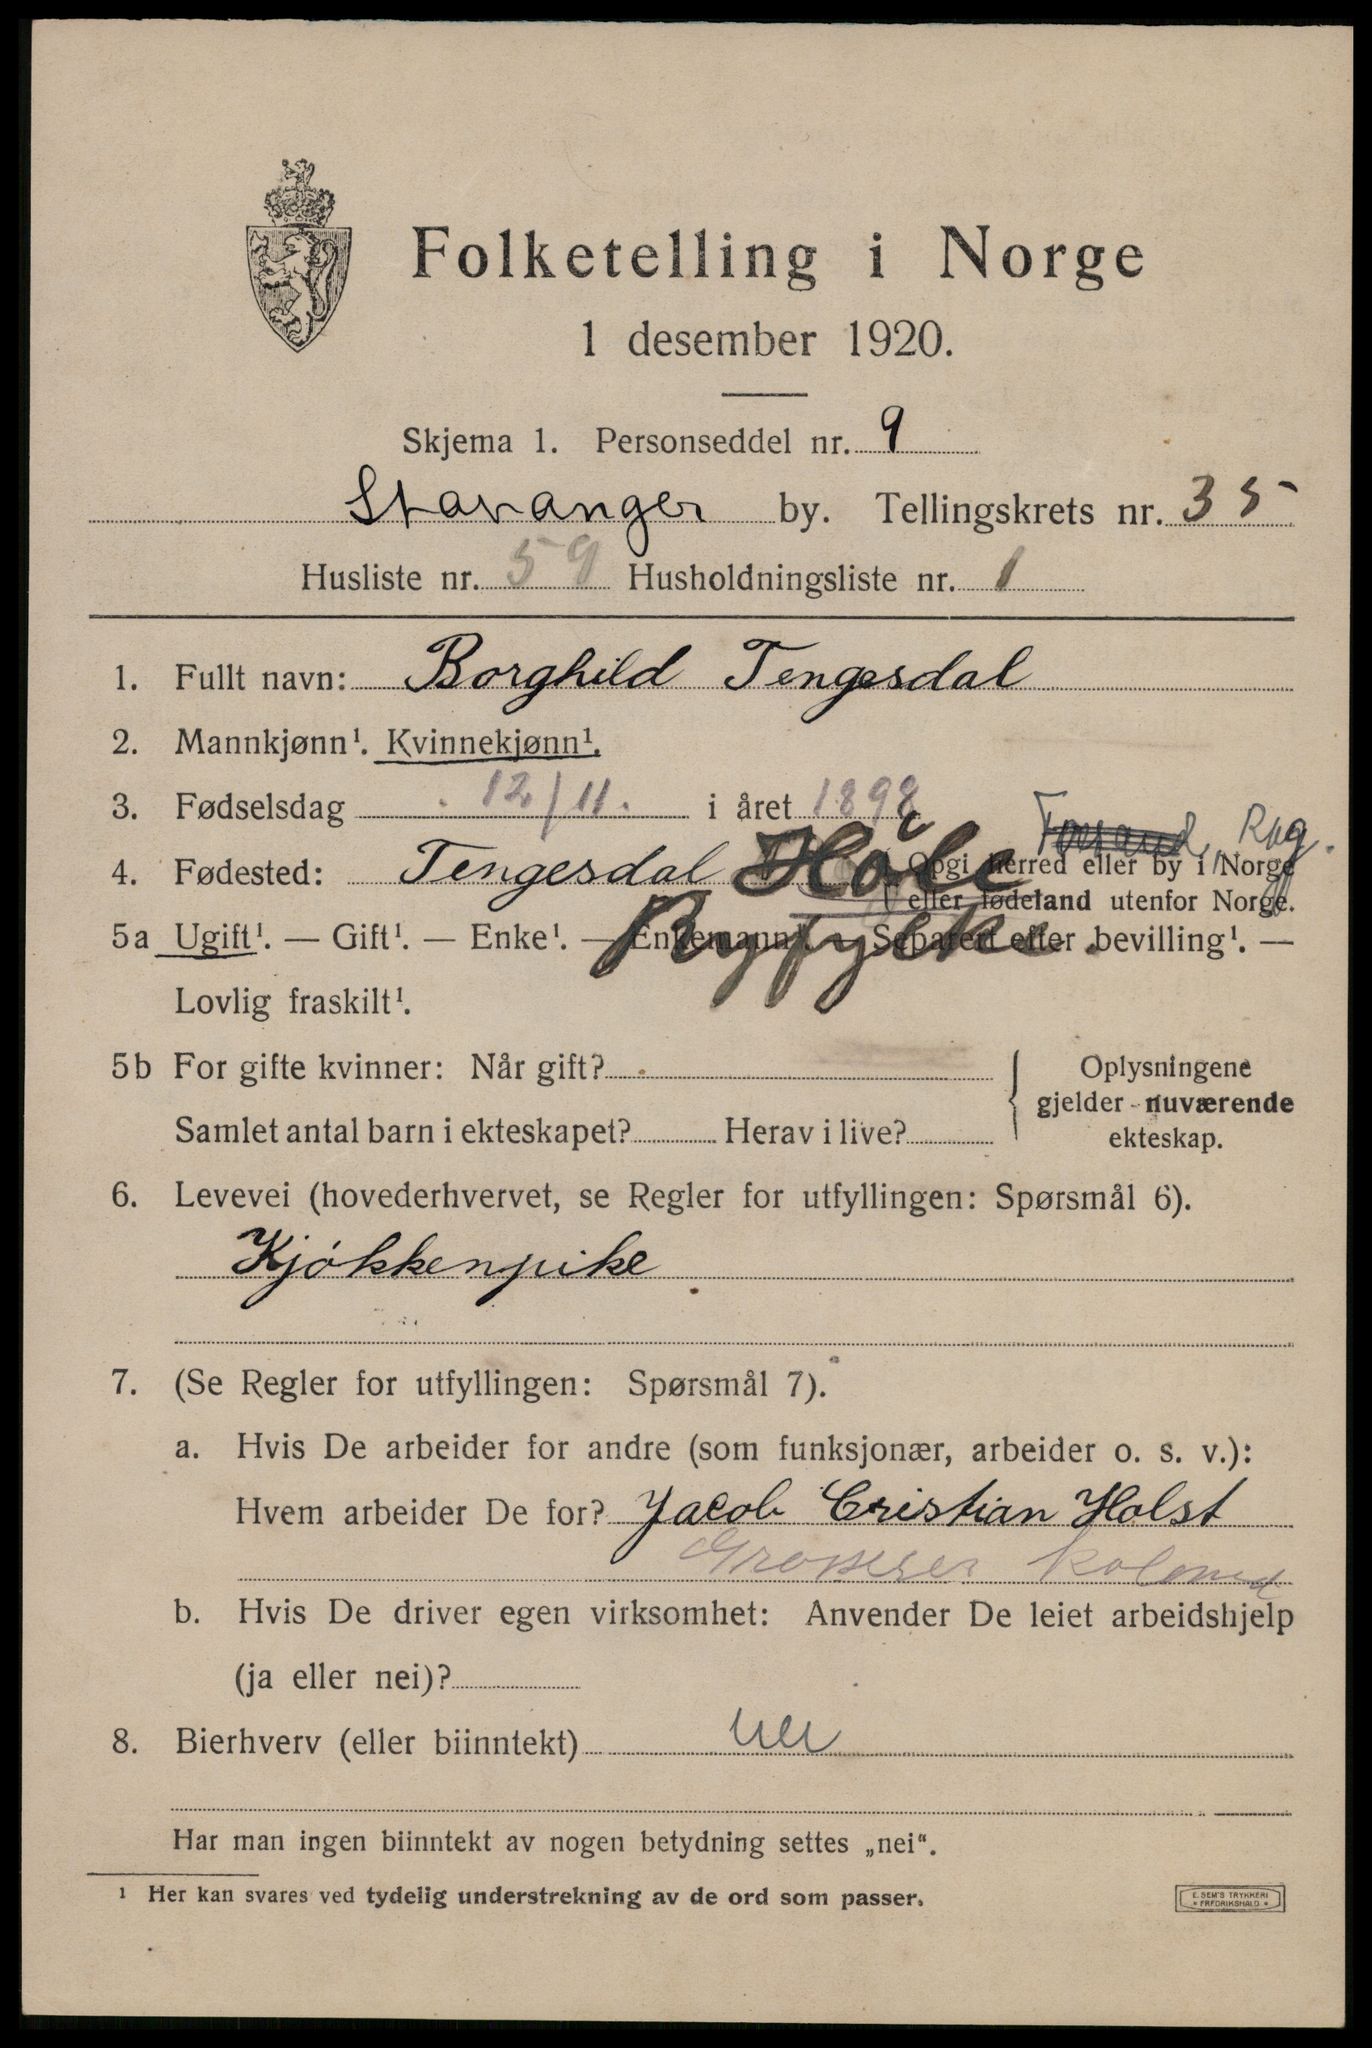 Folketelling i Norge
1 desember 1920.
Skjema 1. Personseddel nr. 9
Stavanger by. Tellingskrets nr. 35
Husliste nr. 59 Husholdningsliste nr. 1
1. Fullt navn: Borghild Tengesdal
2. Mannkjønn¹. Kvinnekjønn¹.
3. Fødselsdag 12/11. i året 1898
Forsand, Rog.
4. Fødested: Tengesdal Høle Opgi herred eller by i Norge
eller fødeland utenfor Norge.
Ryfylke.
5a Ugift¹. — Gift¹. — Enke¹. — Enkemann¹. — Separert efter bevilling¹. —
Lovlig fraskilt¹.
5b For gifte kvinner: Når gift? Oplysningene
gjelder nuværende
Samlet antal barn i ekteskapet? Herav i live? ekteskap.
6. Levevei (hovederhvervet, se Regler for utfyllingen: Spørsmål 6).
Kjøkkenpike
7. (Se Regler for utfyllingen: Spørsmål 7).
a. Hvis De arbeider for andre (som funksjonær, arbeider o. s. v.):
Hvem arbeider De for? Jacob Cristian Holst
Grosserer
b. Hvis De driver egen virksomhet: Anvender De leiet arbeidshjelp
(ja eller nei)?
8. Bierhverv (eller biinntekt) nei
Har man ingen biinntekt av nogen betydning settes „nei“.
¹ Her kan svares ved tydelig understrekning av de ord som passer.
E. SEM'S TRYKKERI
FREDRIKSHALD